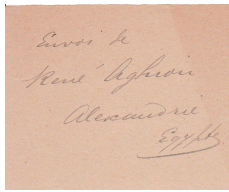 Envoi de
René Aghion
Alexandrie
Egypte